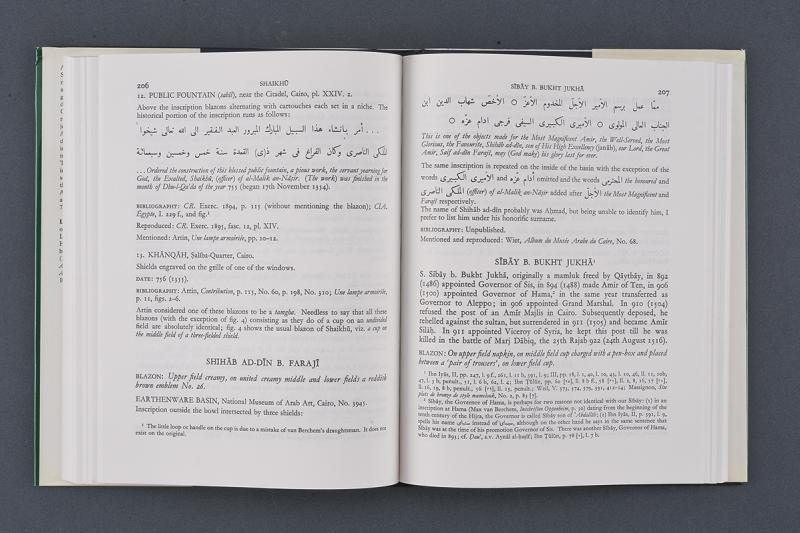 206
SHAIKHŪ
12. PUBLIC FOUNTAIN (sabīl), near the Citadel, Cairo, pl. XXIV. 2.
Above the inscription blazons alternating with cartouches each set in a niche. The
historical portion of the inscription runs as follows:
. . . أمر بإنشاء هذا السبيل المبارك المبرور العبد الفقير الى الله تعالى شيخوا
الملكى الناصرى وكان الفراغ فى شهر ذ(ى) القعدة سنة خمس وخمسين وسبعمائة
. . . Ordered the construction of this blessed public fountain, a pious work, the servant yearning for
God, the Exalted, Shaikhū, (officer) of al-Malik an-Nāṣir. (The work) was finished in the
month of Dhu-l-Qa'da of the year 755 (began 17th November 1354).
BIBLIOGRAPHY: CR. Exerc. 1894, p. 115 (without mentioning the blazon); CIA.
Égypte, I. 229 f., and fig.¹
Reproduced: CR. Exerc. 1895, fasc. 12, pl. XIV.
Mentioned: Artin, Une lampe armoiriée, pp. 10–12.
13. KHĀNQĀH, Ṣalība-Quarter, Cairo.
Shields engraved on the grille of one of the windows.
DATE: 756 (1355).
BIBLIOGRAPHY: Artin, Contribution, p. 115, No. 60, p. 198, No. 310; Une lampe armoiriée,
p. 11, figs. 2–6.
Artin considered one of these blazons to be a tamgha. Needless to say that all these
blazons (with the exception of fig. 4) consisting as they do of a cup on an undivided
field are absolutely identical; fig. 4 shows the usual blazon of Shaikhū, viz. a cup on
the middle field of a three-fielded shield.
SHIHĀB AD-DĪN B. FARAJĪ
BLAZON: Upper field creamy, on united creamy middle and lower fields a reddish
brown emblem No. 26.
EARTHENWARE BASIN, National Museum of Arab Art, Cairo, No. 3945.
Inscription outside the bowl intersected by three shields:
¹ The little loop or handle on the cup is due to a mistake of van Berchem's draughtsman. It does not
exist on the original.
SĪBĀY B. BUKHT JUKHĀ
207
ممّا عمل برسم الأمير الأجلّ المخدوم الأعزّ ○ الأخصّ شهاب الدين ابن
الجناب العالى المولوى ○ الأميرى الكبيرى السيفى قرجى ادام عزّه ○
This is one of the objects made for the Most Magnificent Amīr, the Well-Served, the Most
Glorious, the Favourite, Shihāb ad-dīn, son of His High Excellency (janāb), our Lord, the Great
Amīr, Saif ad-dīn Farajī, may (God make) his glory last for ever.
The same inscription is repeated on the inside of the basin with the exception of the
words الأميرى الكبيرى and أدام عزّه omitted and the words المحترمى the honoured and
الملكى الناصرى (officer) of al-Malik an-Nāṣir added after الأجلّ the Most Magnificent and
Farajī respectively.
The name of Shihāb ad-dīn probably was Aḥmad, but being unable to identify him, I
prefer to list him under his honorific surname.
BIBLIOGRAPHY: Unpublished.
Mentioned and reproduced: Wiet, Album du Musée Arabe du Caire, No. 68.
SĪBĀY B. BUKHT JUKHĀ¹
S. Sībāy b. Bukht Jukhā, originally a mamluk freed by Qāytbāy, in 892
(1486) appointed Governor of Sīs, in 894 (1488) made Amīr of Ten, in 906
(1500) appointed Governor of Hama,² in the same year transferred as
Governor to Aleppo; in 906 appointed Grand Marshal. In 910 (1504)
refused the post of an Amīr Majlis in Cairo. Subsequently deposed, he
rebelled against the sultan, but surrendered in 911 (1505) and became Amīr
Silāḥ. In 911 appointed Viceroy of Syria, he kept this post till he was
killed in the battle of Marj Dābiq, the 25th Rajab 922 (24th August 1516).
BLAZON: On upper field napkin, on middle field cup charged with a pen-box and placed
between a 'pair of trousers', on lower field cup.
¹ Ibn Iyās, II, pp. 247, l. 9 f.,
² Sībāy, the Governor of Hama, is perhaps for two reasons not identical with our Sībāy: (1) in an
inscription at Hama (Max van Berchem, Inschriften Oppenheim, p. 30) dating from the beginning of the
tenth century of the Hijra, the Governor is called Sībāy son of 'Abdallāh; (2) Ibn Iyās, II, p. 591, l. 9,
spells his name instead of although on the other hand he says in the same sentence that
Sībāy was at the time of his promotion Governor of Sīs. There was another Sībāy, Governor of Hama,
who died in 893;